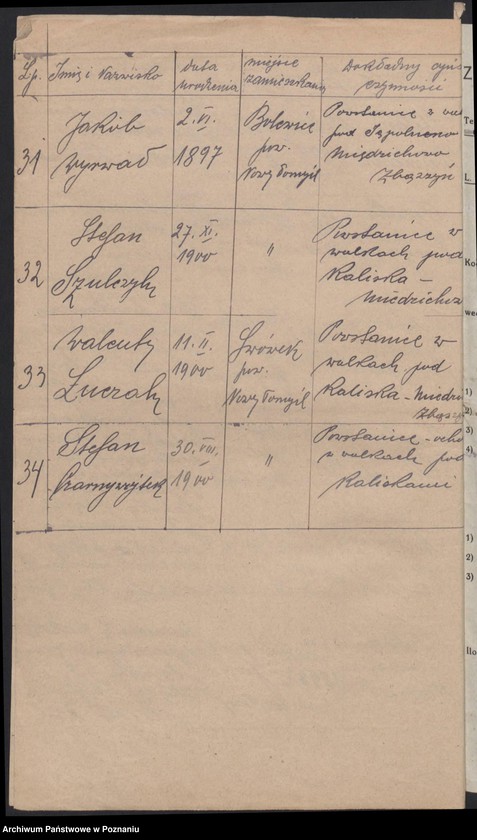 L.p. Imię i Nazwisko data urodzenia miejsce zamieszkania Dokładny opis czynności
31 Jakób Wyrwał 2. VI. 1897 Bolewic pow. Nowy Tomyśl Powstaniec z
pod Szpolneno
Miedzichowo
Zbąszyń
32 Stefan Szulczyk 27. XI. 1900 " Powstaniec w
walkach pod
Kaliska -
Miedzichow
33 Walenty Łuczak 11. II. 1900 Lwówek pow. Nowy Tomyśl Powstaniec w
walkach pod
Kaliska - Miedzi
Zbąsz
34 Stefan Czarnywojtek 30. VIII. 1900 " Powstaniec - ocho
z walkach pod
Kaliskami
Z
Te
L.
Ko
we
1)
2)
3)
4)
1)
2)
3)
Ilo
Archiwum Państwowe w Poznaniu